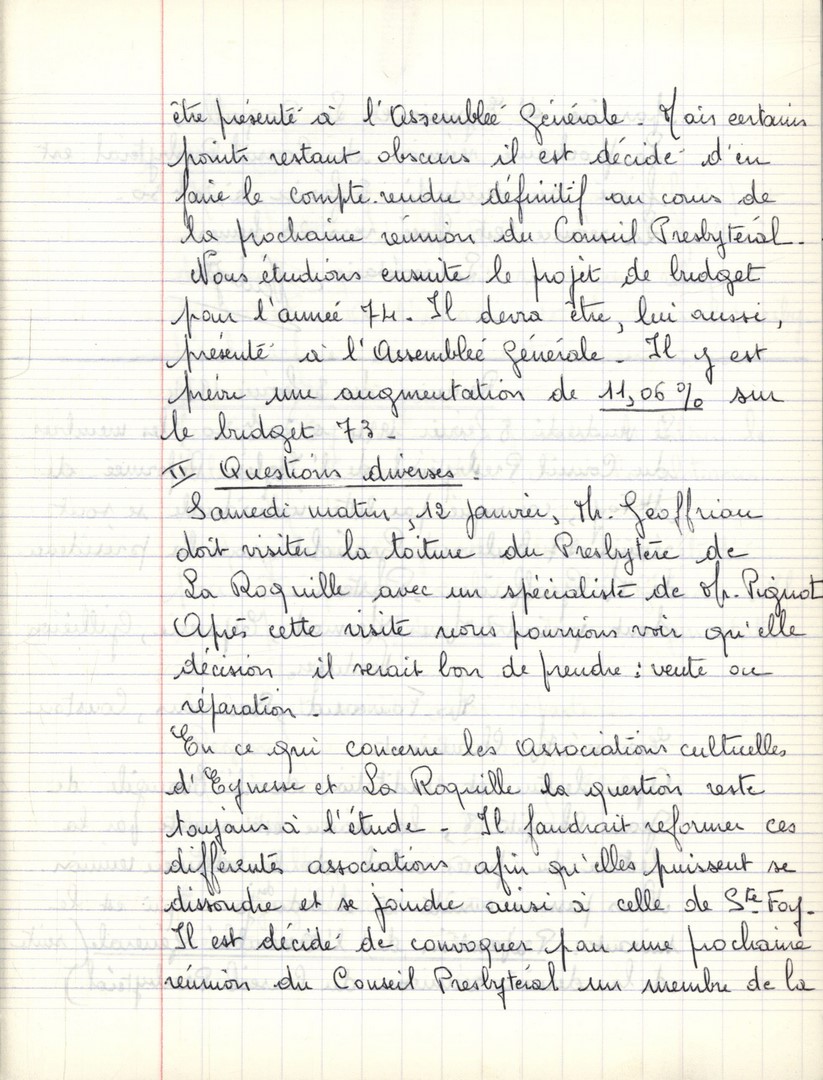 être présenté à l'Assemblée Générale. Mais certains
points restant obscurs il est décidé d'en
faire le compte.rendu définitif au cours de
la prochaine réunion du Conseil Presbytéral.
Nous étudions ensuite le projet de budget
pour l'année 74. Il devra être, lui aussi,
présenté à l'Assemblée Générale. Il y est
prévu une augmentation de 11,06 % sur
le budget 73.
II Questions diverses.
Samedi matin, 12 Janvier, Mr. Geoffriau
doit visiter la toiture du Presbytère de
La Roquille avec un spécialiste de Mr. Pignot
Après cette visite nous pourrions voir qu'elle
décision il serait bon de prendre : vente ou
réparation.
En ce qui concerne les Associations cultuelles
d'Eynesse et La Roquille la question reste
toujours à l'étude. Il faudrait reformer ces
différentes associations afin qu'elles puissent se
dissoudre et se joindre ainsi à celle de Ste Foy.
Il est décidé de convoquer pour une prochaine
réunion du Conseil Presbytéral un membre de la